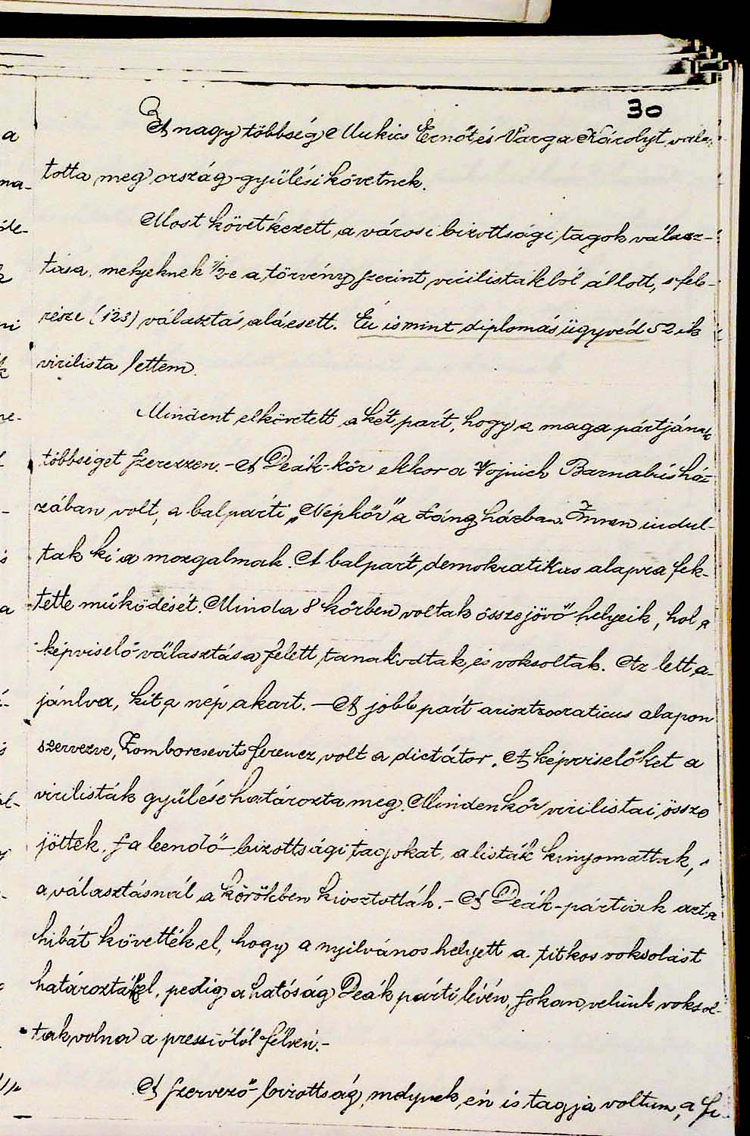 30
A nagy többség Mukics Ernőt és Varga Károlyt vála-
totta meg ország-gyűlési követnek.
Most következett a városi bizottsági tagok válasz-
tása, melyeknek ½-e a törvény szerint virilistákból állott, s fele
része (123) választás alá esett. Én is mint diplomás ügyvéd 52 ik
virilista lettem.
Mindent elkövetett a két párt, hogy a maga pártjának
többséget szerezzen. - A Deák-kör ekkor a Vojnich Barnabás há-
zában volt, a balpárti „Népkör" a Láng házban. Innen indul-
tak ki a mozgalmak. A balpárt, demokratikus alapra fek-
tette működését. Mind a 8 körben voltak összejövő helyeik, hol a
képviselő választása felett, tanakodtak, és voksoltak. Az lett a-
jánlva, kit a nép akart. - A jobb párt arisztocraticus alapon
szervezve, Zomborcsevits Ferencz, volt a dictátor. A képviselőket a
virilisták gyűlése határozta meg. Minden kör virilistai össze
jöttek, s a leendő bizottsági tagokat, a listák kinyomattak,
a választásnál a körökben kiosztották. - A Deák-pártiak azt a
hibát követték el, hogy a nyilvános helyett a titkos voksolást
határozták el, pedig a hatóság Deák párti lévén, sokan velünk voksol-
tak volna a pressiótól félvén. -
A szervező bizottság, melynek én is tagja voltam, a